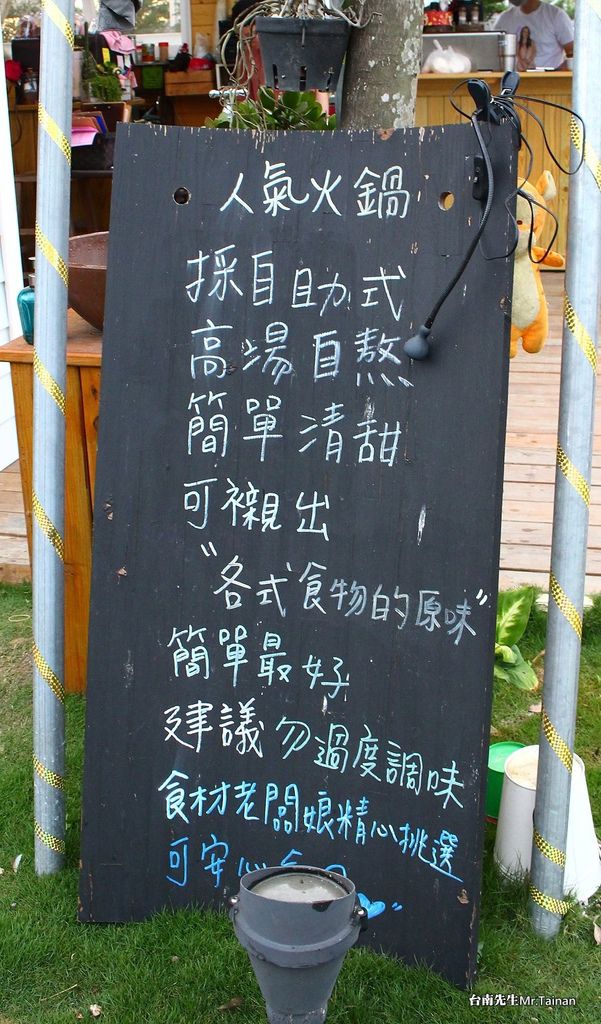 人氣火鍋
採自助式
高湯自熬
簡單清甜
可襯出
"各式食物的原味"
簡單最好
建議勿過度調味
食材老闆娘精心挑選
可安心
台南先生Mr.Tainan